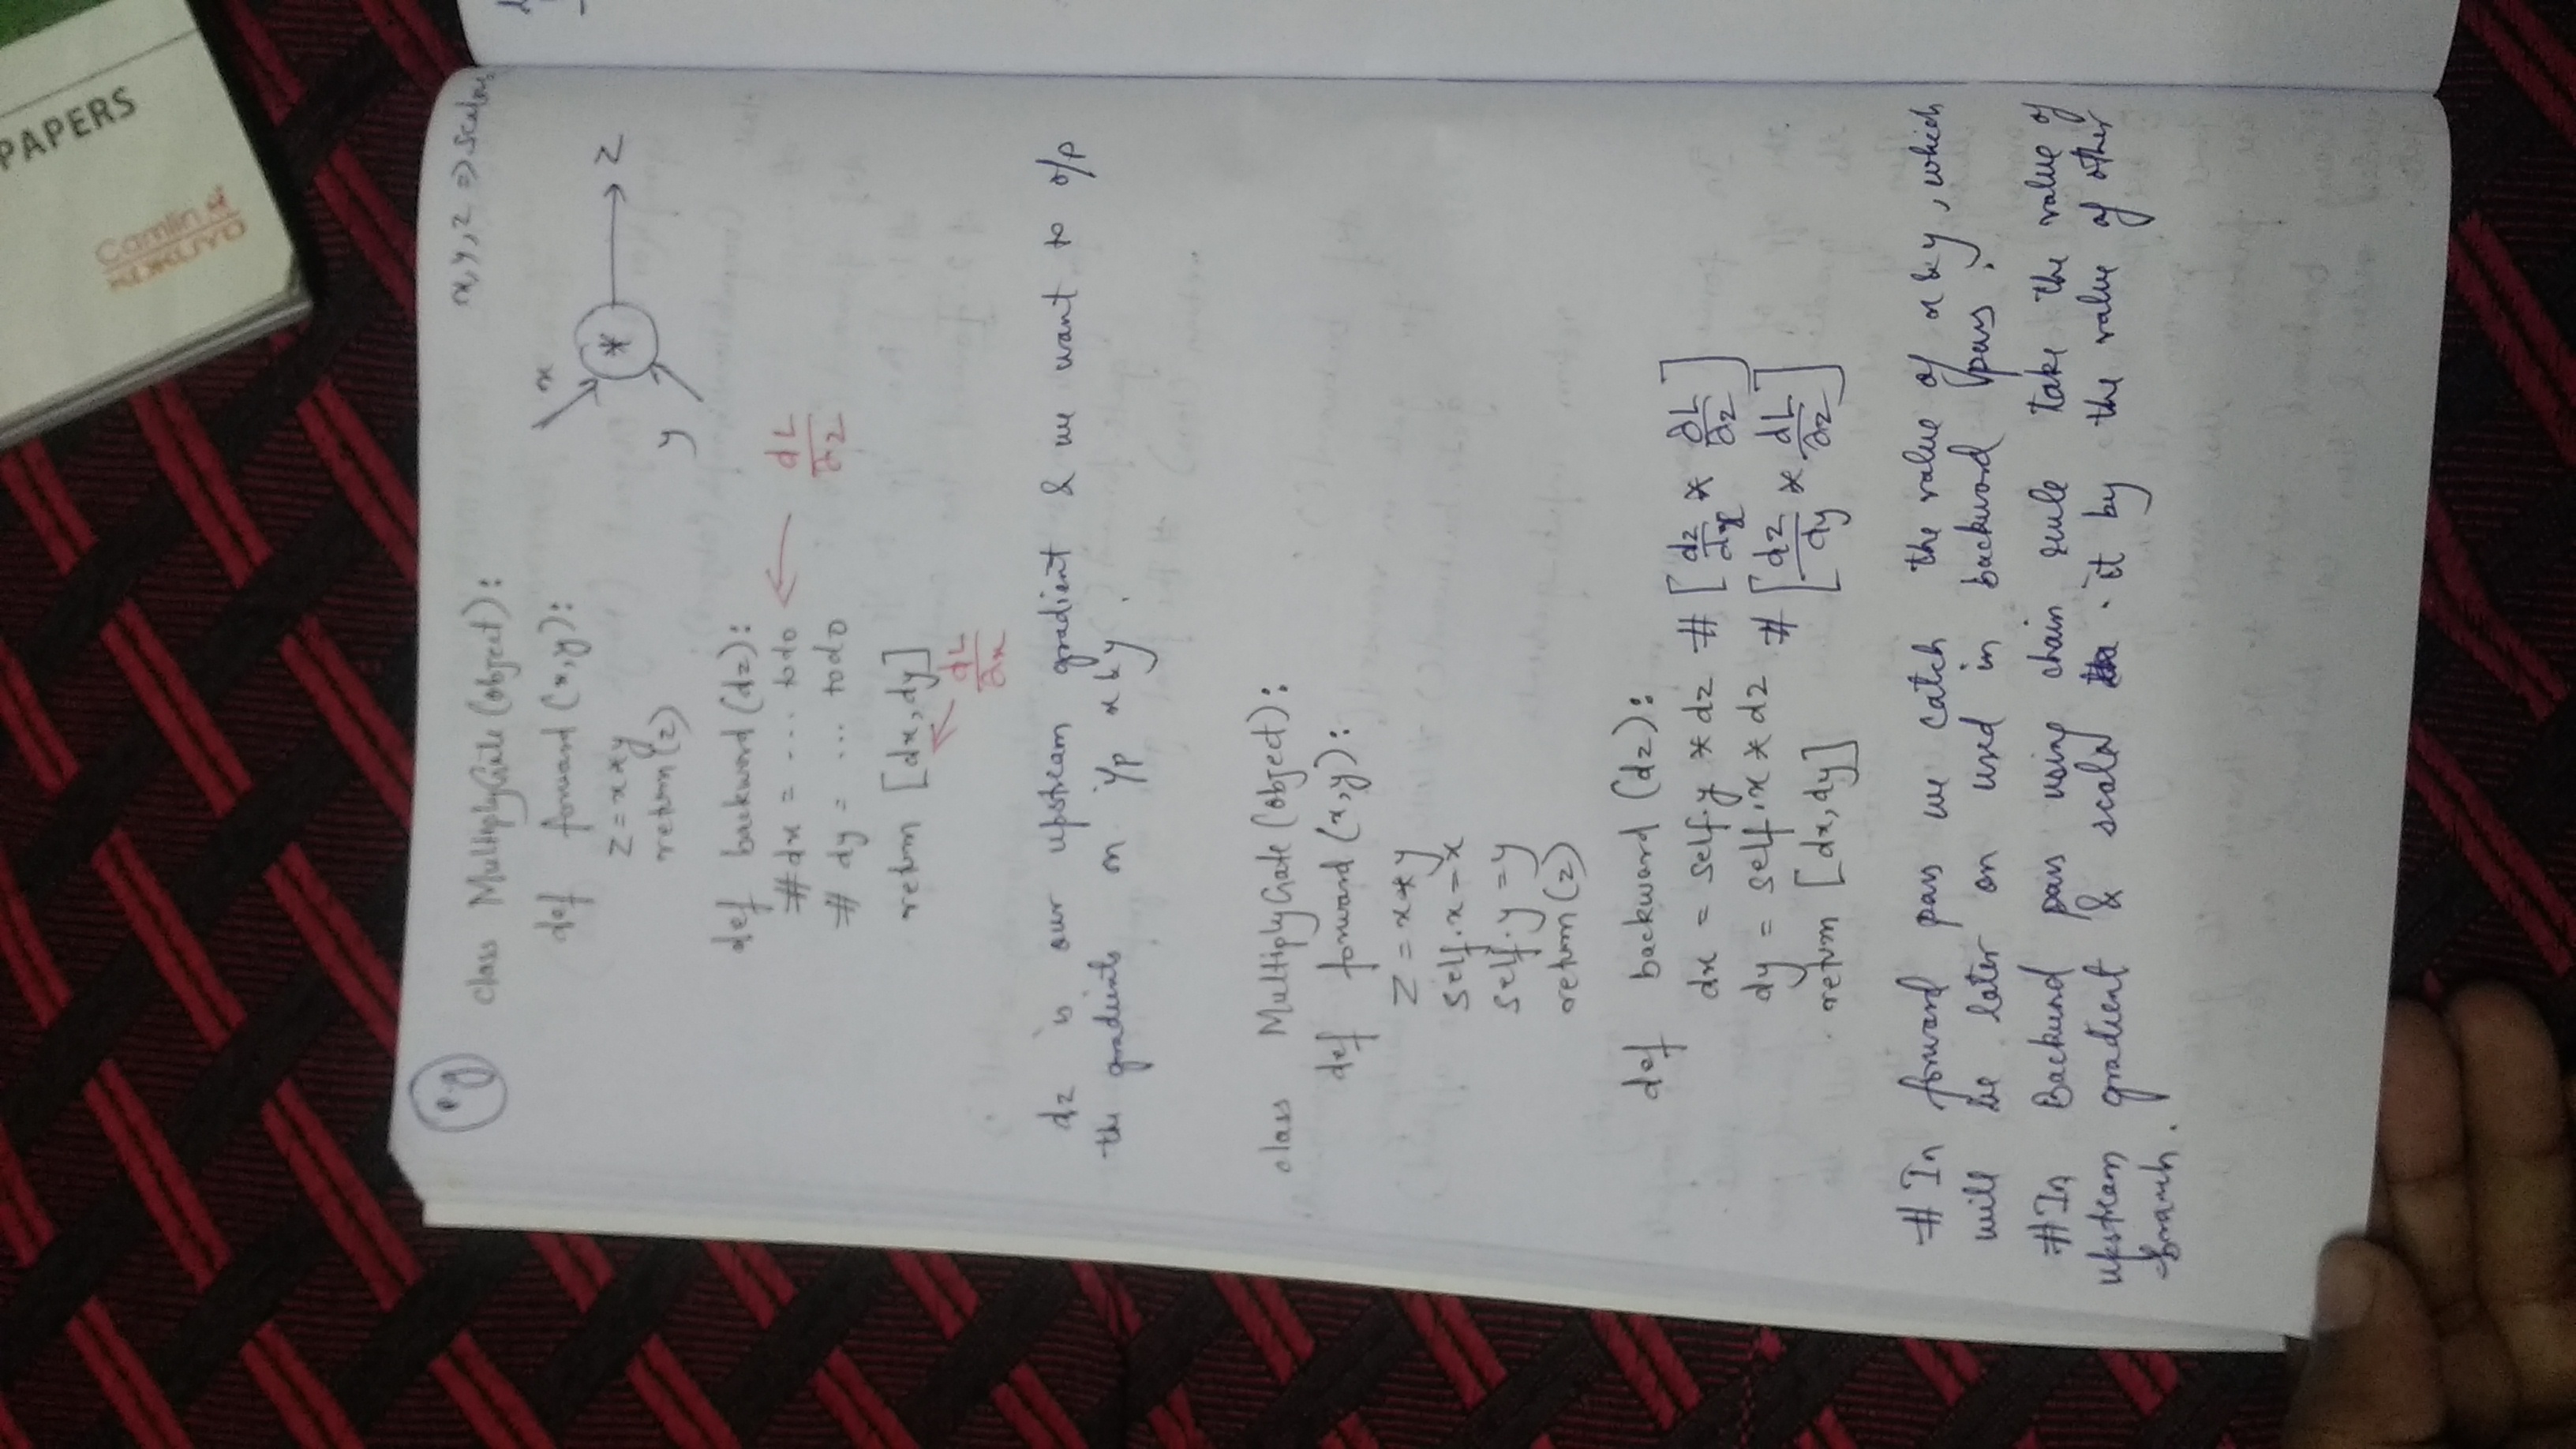 PAPERS
Camlin
KOKUYO
e.g
x, y, z => scalars
class MultiplyGate (object):
def forward (x,y):
z = x*y
return (z)
x
y
*
z
def backward (dz):
# dx = ... todo
# dy = ... todo
dL
∂z
return [dx, dy]
dL
∂x
dz is our upstream gradient & we want to o/p
the gradients on i/p x & y.
class MultiplyGate (object):
def forward (x,y):
z = x*y
self.x = x
self.y = y
return (z)
def backward (dz):
dx = self.y * dz # [dz/dx * ∂L/∂z]
dy = self.x * dz # [dz/dy * dL/∂z]
return [dx, dy]
# In forward pass we catch the value of x & y, which
will be later on used in backward pass.
# In Backward pass using chain rule take the value of
upstream gradient & scale it by the value of other
branch.